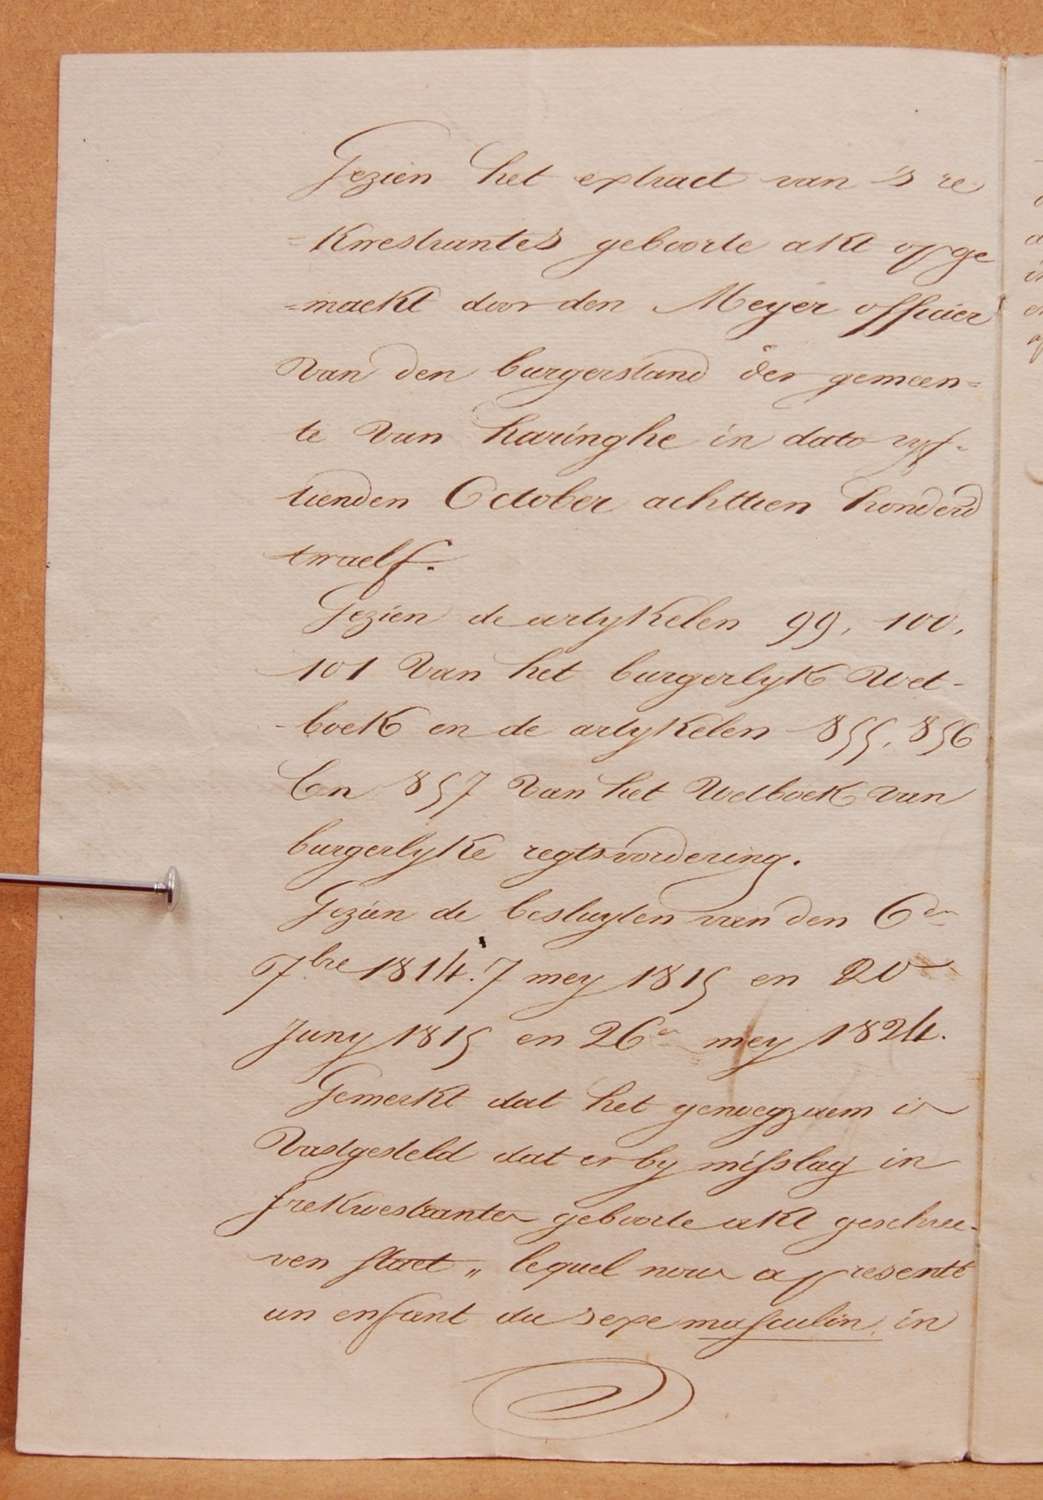 Gezien het extract van 's re
=kwestrantes geboorte akt opge
=maekt door den Meyer officier
van den burgerstand der gemeen=
te van haringhe in dato vyf-
tienden October achttien honderd
twaelf.
Gezien de artykelen 99, 100,
101 van het burgerlyk wet-
-boek en de artykelen 855, 856
En 857 van het wetboek van
burgerlyke regtsvordering.
Gezien de besluyten van den 6en
7bre 1814. 7 mey 1815 en 20
Juny 1815 en 26en mey 1824.
Gemerkt dat het genoegzaem is
vastgesteld dat er by misslag in
s'rekwestrantes geboorte akt geschree-
ven staet „ lequel nous a presenté
un enfant du sexe masculin, in